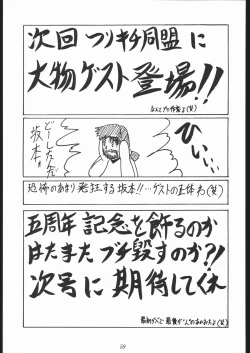 次回 フリキチ同盟 に
大物ゲスト登場!!
ひぃぃ…
どーしたんだ
坂本!!
恐怖のあまり発狂する坂本!!…ゲストの正体わ(笑)
五周年記念を飾るのか
はたまたブチ毀すのか?!
次号に期待してくれ